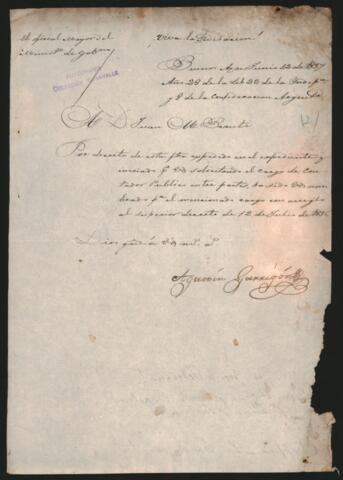 El oficial Mayor del
Minist.º de Gobno.
¡Viva la Federacion!
Buenos Ayres Junio 12 de 1837
Año 28 de la Lib. 22 de la Indep.ª
y 8 de la Confederacion Argentina
A D. Juan M.
Por decreto de esta fha expedido en el expediente
iniciado p.r Vd solicitando el cargo de Con-
tador Publico entre partes, ha sido Vd nom-
brado p.ª el mencionado cargo con arreglo
al superior decreto de 12 de Julio de
Dios gue á Vd m.s a.s
Agustin Garrigós